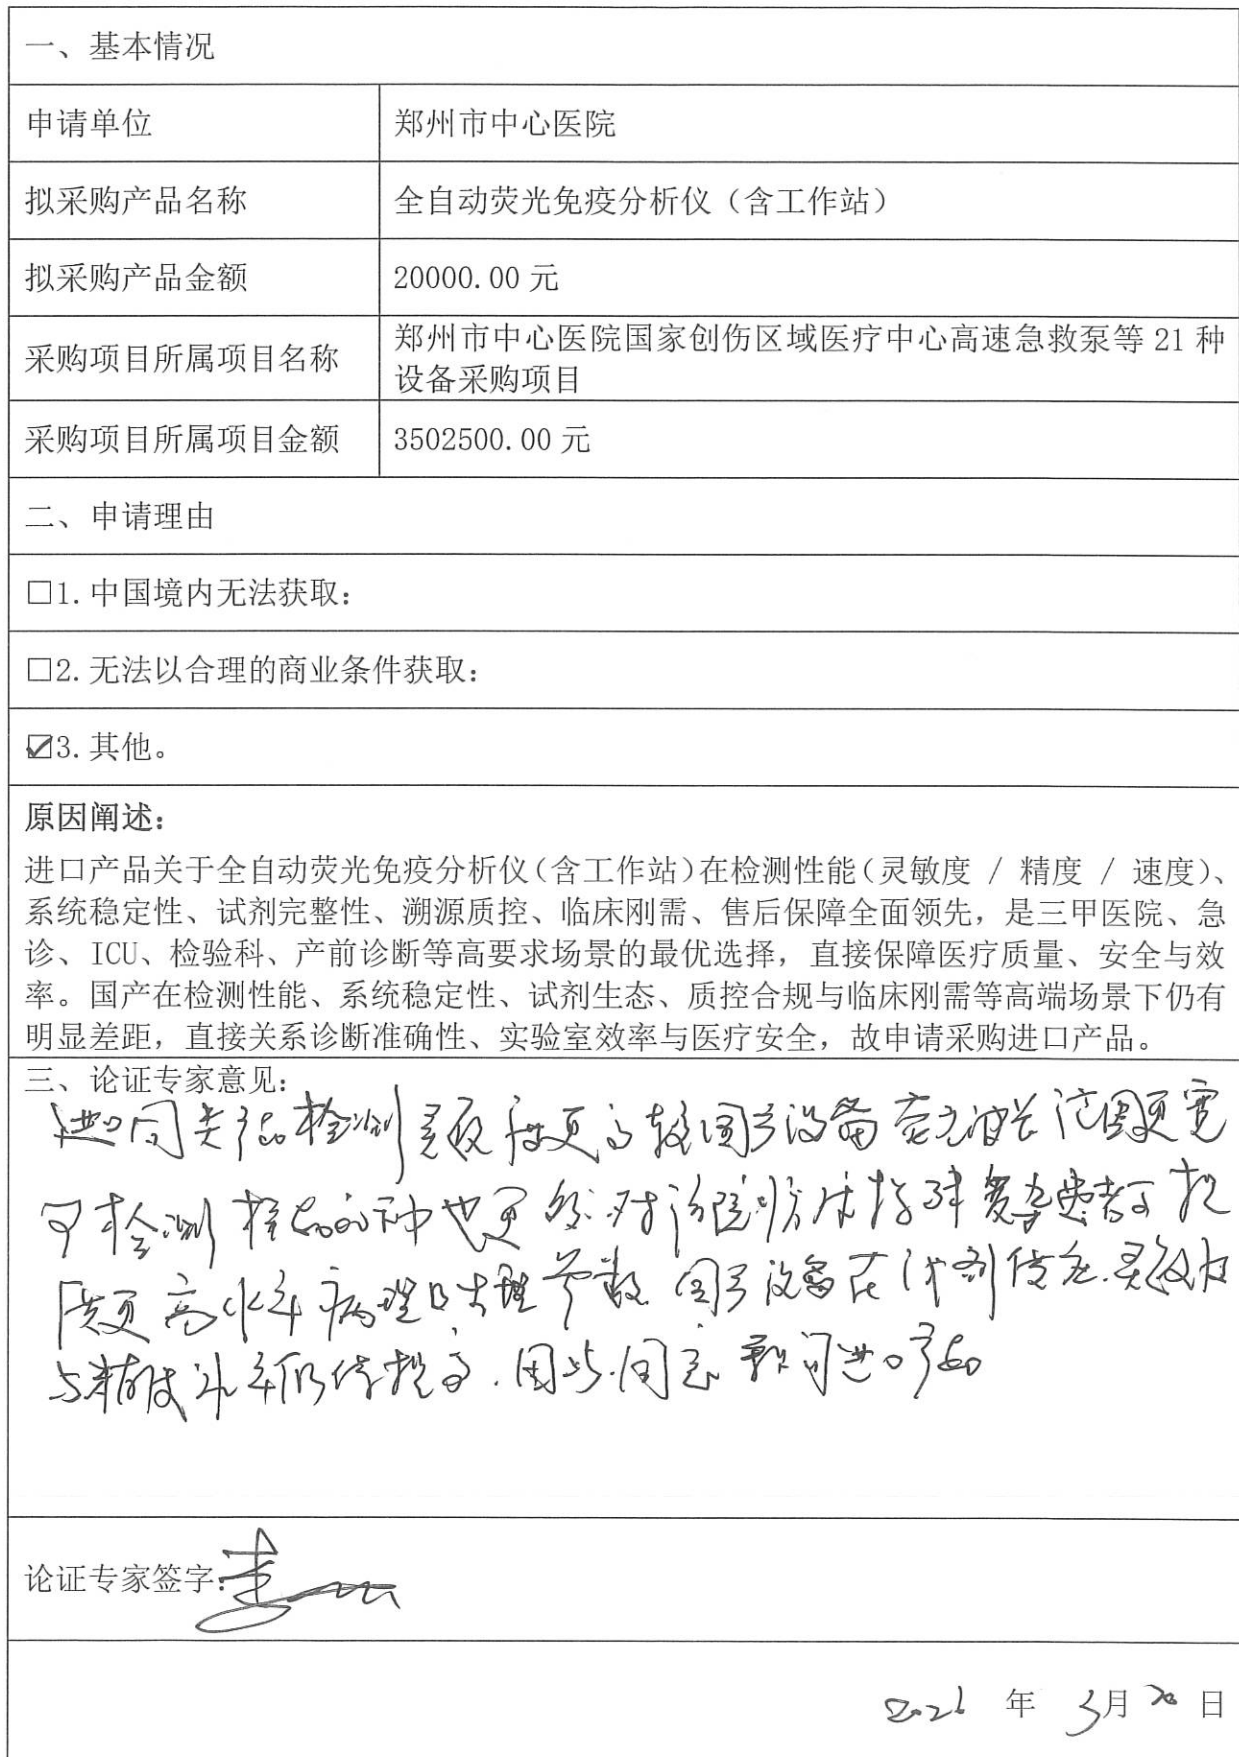 一、基本情况
申请单位
郑州市中心医院
拟采购产品名称
全自动荧光免疫分析仪（含工作站）
拟采购产品金额
20000.00 元
采购项目所属项目名称
郑州市中心医院国家创伤区域医疗中心高速急救泵等 21 种
设备采购项目
采购项目所属项目金额
3502500.00 元
二、申请理由
□1. 中国境内无法获取：
□2. 无法以合理的商业条件获取：
☑3. 其他。
原因阐述：
进口产品关于全自动荧光免疫分析仪（含工作站）在检测性能（灵敏度 / 精度 / 速度）、
系统稳定性、试剂完整性、溯源质控、临床刚需、售后保障全面领先，是三甲医院、急
诊、ICU、检验科、产前诊断等高要求场景的最优选择，直接保障医疗质量、安全与效
率。国产在检测性能、系统稳定性、试剂生态、质控合规与临床刚需等高端场景下仍有
明显差距，直接关系诊断准确性、实验室效率与医疗安全，故申请采购进口产品。
三、论证专家意见：
进口同类产品检测灵敏度更高较国产设备荧光波长范围更宽
可检测样品的种也更多，对 复杂患者可提
供更高水平病理 参数 国产设备在 灵敏度
与精度水平仍待提高．因此．同意 进口产品
论证专家签字：
年 3月 20 日